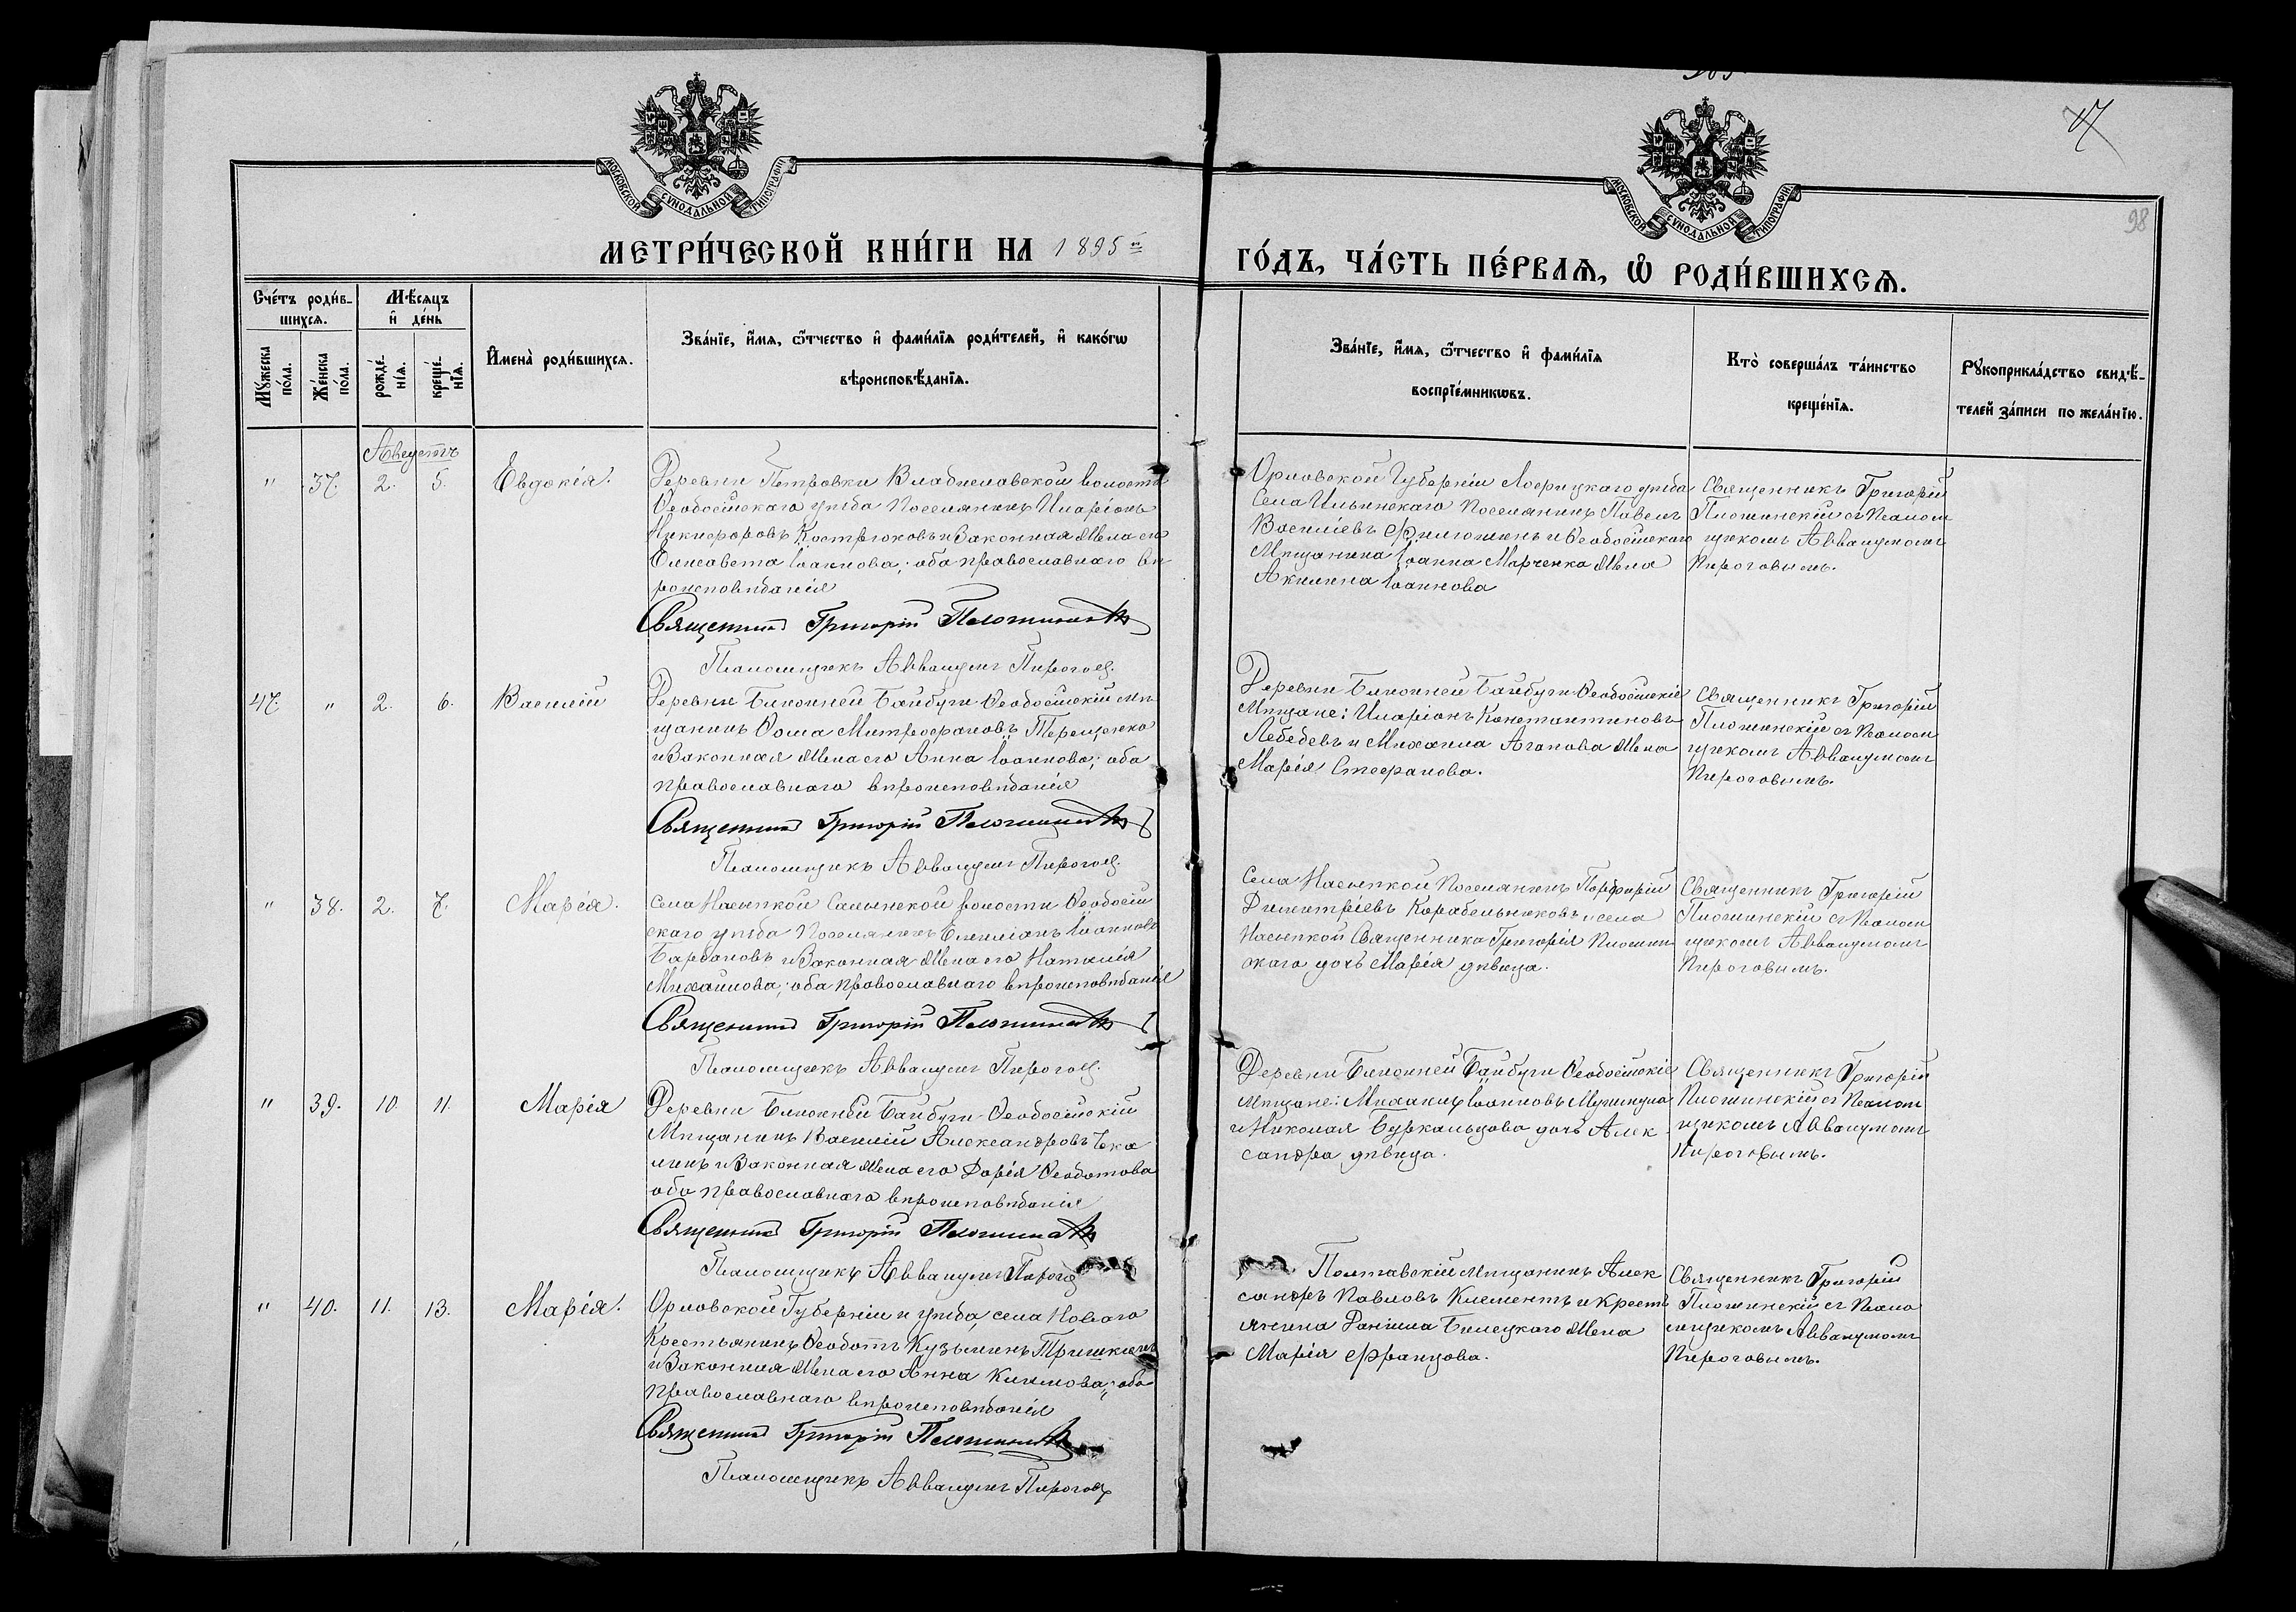 98
МОСКОВСКОЙ СѴНОДАЛЬНОЙ ТИПОГРАФІИ
МОСКОВСКОЙ СѴНОДАЛЬНОЙ ТИПОГРАФІИ
МЕТРИ́ЧЕСКОЙ КНИ́ГИ НА 1895й
ГО́ДЪ, ЧА́СТЬ ПЕ́РВАѦ, Ѡ҆ РОДИ́ВШИХСѦ.
Сче́тъ роди́в-
шихсѧ.
Мѣ́сѧцъ
и҆ де́нь
Мꙋ́жеска
по́ла.
Же́нска
по́ла.
рожде́-
нїѧ.
креще́-
нїѧ.
И҆мена̀ роди́вшихсѧ.
Зва́нїе, и҆́мѧ, ѻ҆́тчество и҆ фами́лїѧ роди́телей, и҆ како́гѡ
вѣроисповѣ́данїѧ.
Зва́нїе, и҆́мѧ, ѻ҆́тчество и҆ фами́лїѧ
воспрїе́мникѡвъ.
Кто̀ соверша́лъ та́инство
креще́нїѧ.
Рꙋкоприкла́дство свидѣ́-
телей за́писи по жела́нїю.
Августъ
" 37. 2. 5. Евдокія.
Деревни Петровки Владиславской волости
Ѳеодосійскаго уѣзда Поселянинъ Иларіонъ
Никифоровъ Кострюковъ и Законная Жена его
Елисавета Іоаннова; оба православнаго вѣ
роисповѣданія
Священникъ Григорій Плошинскій
Псаломщикъ Аввакумъ Пироговъ.
Орловской Губерніи уѣзда
Села Ильинскаго Поселянинъ Павелъ
Василіевъ Филюшинъ и Ѳеодосійскаго
Мѣщанина Іоанна Марченко Жена
Акилина Іоаннова
Священникъ Григорій
Плошинскій съ Псалом
щикомъ Аввакумомъ
Пироговымъ.
47. " 2. 6. Василій
Деревни Ближней Байбуги Ѳеодосійскій мѣ
щанинъ Ѳома Митрофановъ Терещенко
и Законная Жена его Анна Іоаннова; оба
православнаго вѣроисповѣданія
Священникъ Григорій Плошинскій
Псаломщикъ Аввакумъ Пироговъ.
Деревни Ближней Байбуги Ѳеодосійскіе
Мѣщане: Иларіонъ Константиновъ
Лебедевъ и Михаила Агапова Жена
Марія Стефанова.
Священникъ Григорій
Плошинскій съ Псалом
щикомъ Аввакумомъ
Пироговымъ.
" 38. 2. 7. Марія.
Села Насыпкой Салынской волости Ѳеодосій
скаго уѣзда Поселянинъ Емиліанъ Іоанновъ
и Законная Жена его Наталія
Михайлова; оба православнаго вѣроисповѣданія
Священникъ Григорій Плошинскій
Псаломщикъ Аввакумъ Пироговъ.
Села Насыпкой Поселянинъ Порфирій
Димитріевъ Корабельниковъ и села
Насыпкой Священника Григорія Плошин
скаго дочь Марія дѣвица.
Священникъ Григорій
Плошинскій съ Псалом
щикомъ Аввакумомъ
Пироговымъ.
" 39. 10. 11. Марія
Деревни Ближней Байбуги Ѳеодосійскій
Мѣщанинъ Василій Александровъ Чека
линъ и Законная Жена его Дарія Ѳеодотова
оба православнаго вѣроисповѣданія
Священникъ Григорій Плошинскій
Псаломщикъ Аввакумъ Пирогов
Деревни Ближней Байбуги Ѳеодосійскіе
Мѣщане: Михаилъ Іоанновъ
и Николая Буркальцова дочь Алек
сандра дѣвица.
Священникъ Григорій
Плошинскій съ Псалом
щикомъ Аввакумомъ
Пироговымъ.
" 40. 11. 13. Марія.
Орловской Губерніи и уѣзда, села Новаго
Крестьянинъ Ѳеодотъ Кузьминъ Тришкинъ
и Законная Жена его Анна Климова; оба
православнаго вѣроисповѣданія
Священникъ Григорій Плошинскій
Псаломщикъ Аввакумъ Пироговъ
Полтавскій Мѣщанинъ Алек
сандръ Павловъ Климентъ и Крест
янина Даніила Билецкаго Жена
Марія Францова.
Священникъ Григорій
Плошинскій съ Псало
мщикомъ Аввакумомъ
Пироговымъ.